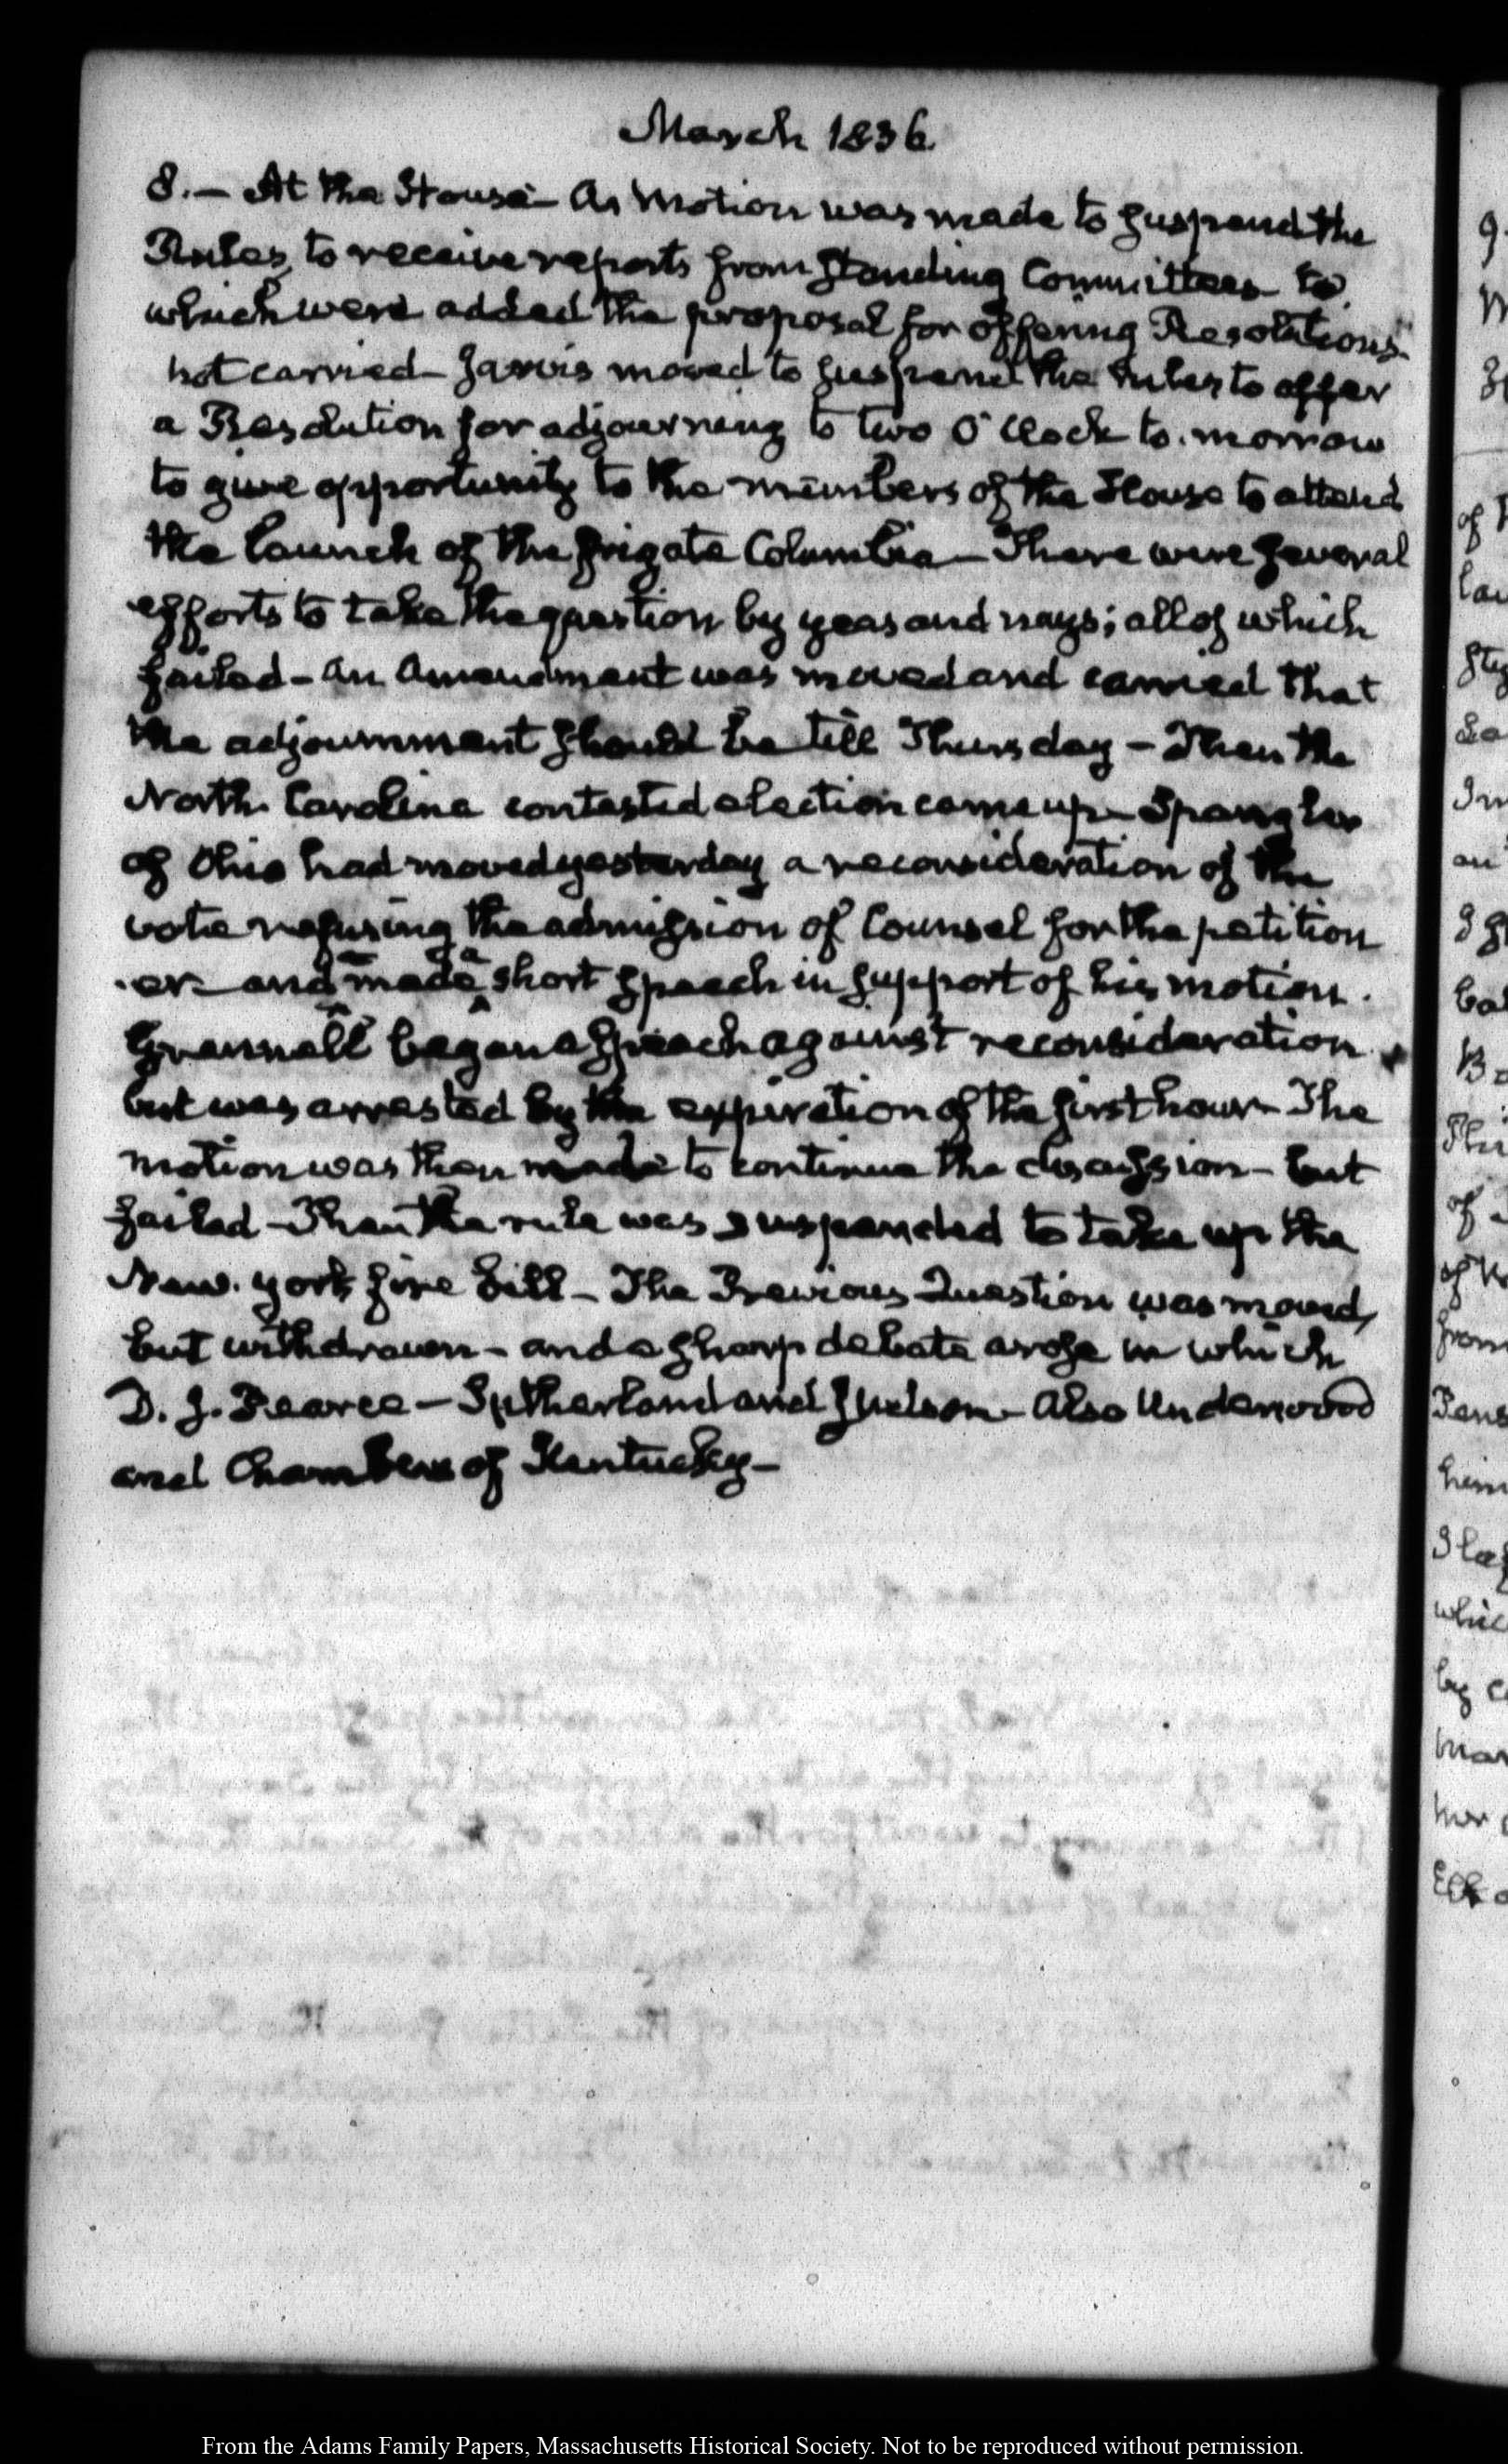 March 1836.
8.— At the House— A Motion was made to suspend the
Rules, to receive reports from Standing Committees to
which were added the proposal for offering Resolutions
not carried— Jarvis moved to suspend the rules to offer
a Resolution for adjourning to two O'Clock to-morrow
to give opportunity to the members of the House to attend
the launch of the frigate Columbia— There were several
efforts to take the question by yeas and nays; all of which
failed— An Amendment was moved and carried that
the adjournment should be till Thursday— Then the
North Carolina contested election came up— Spangler
of Ohio had moved yesterday a reconsideration of the
vote refusing the admission of Counsel for the petition
er— and made a short speech in support of his motion.
Grennell began a speech against reconsideration
but was arrested by the expiration of the first hour— The
motion was then made to continue the discussion— but
failed— Then the rule was suspended to take up the
New-York fire bill— The Previous Question was moved,
but withdrawn— and a sharp debate arose in which
D. J. Pearce— Sutherland and Judson— Also Underwood
and Chambers of Kentucky—
9.
of
from
him
whic
by
From the Adams Family Papers, Massachusetts Historical Society. Not to be reproduced without permission.